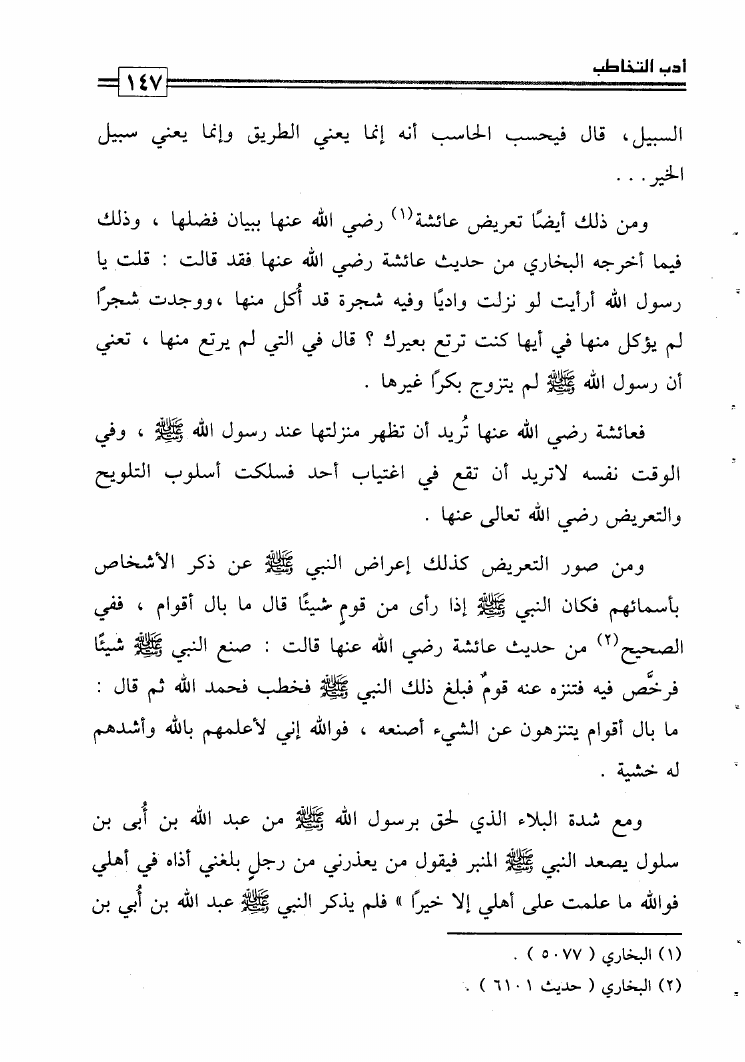 أدب التخاطب
١٤٧
السبيل، قال فيحسب الحاسب أنه إنما يعني الطريق وإنما يعني سبيل
الخير...
ومن ذلك أيضًا تعريض عائشة(١) رضي الله عنها ببيان فضلها ، وذلك
فيما أخرجه البخاري من حديث عائشة رضي الله عنها فقد قالت : قلت يا
رسول الله أرأيت لو نزلت واديًا وفيه شجرة قد أُكل منها ،ووجدت شجرًا
لم يؤكل منها في أيها كنت ترتع بعيرك ؟ قال في التي لم يرتع منها ، تعني
أن رسول الله ﷺ لم يتزوج بكرًا غيرها .
فعائشة رضي الله عنها تُريد أن تظهر منزلتها عند رسول الله ﷺ ، وفي
الوقت نفسه لاتريد أن تقع في اغتياب أحد فسلكت أسلوب التلويح
والتعريض رضي الله تعالى عنها .
ومن صور التعريض كذلك إعراض النبي ﷺ عن ذكر الأشخاص
بأسمائهم فكان النبي ﷺ إذا رأى من قومٍ شيئًا قال ما بال أقوام ، ففي
الصحيح(٢) من حديث عائشة رضي الله عنها قالت : صنع النبي ﷺ شيئًا
فرخَّص فيه فتنزه عنه قومٌ فبلغ ذلك النبي ﷺ فخطب فحمد الله ثم قال :
ما بال أقوام يتنزهون عن الشيء أصنعه ، فوالله إني لأعلمهم بالله وأشدهم
له خشية .
ومع شدة البلاء الذي لحق برسول الله ﷺ من عبد الله بن أُبى بن
سلول يصعد النبي ﷺ المنبر فيقول من يعذرني من رجلٍ بلغني أذاه في أهلي
فوالله ما علمت على أهلي إلا خيرًا » فلم يذكر النبي ﷺ عبد الله بن أُبي بن
(١) البخاري ( ٥٠٧٧ ) .
(٢) البخاري ( حديث ٦١٠١ ) .